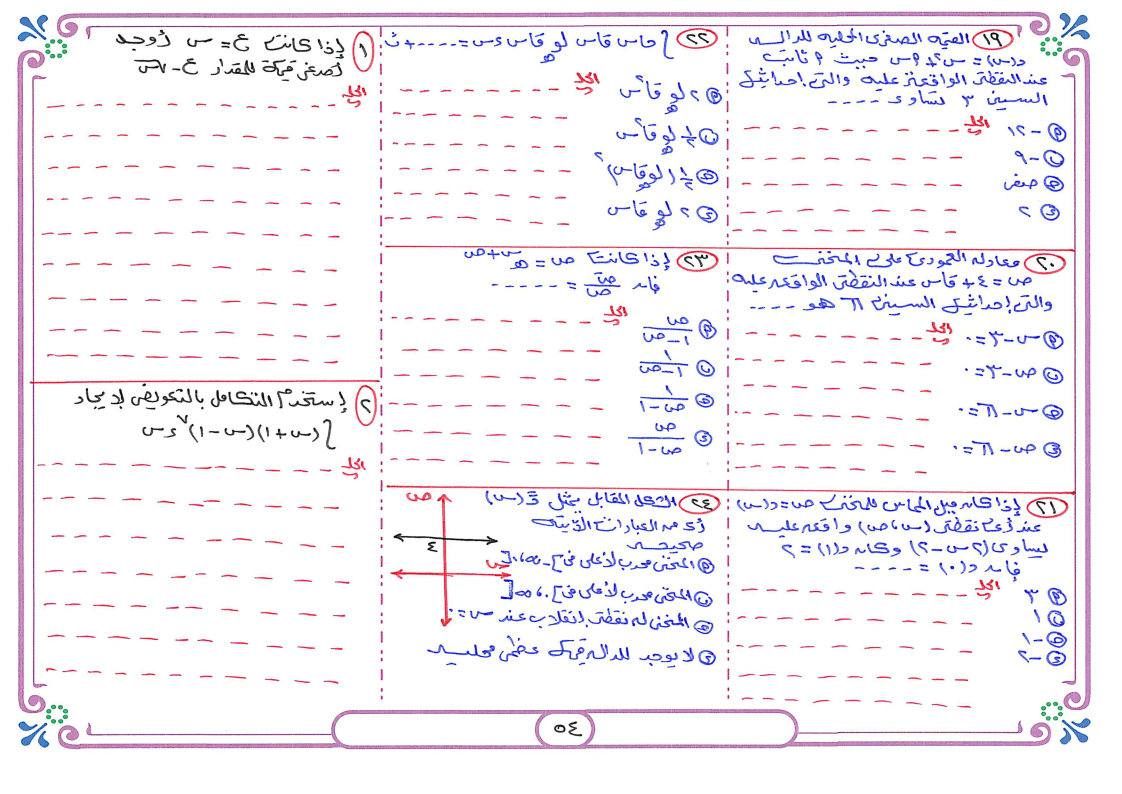 ١٩ القيمة الصغرى المحلية للدالة
د(س) = س² + ٢س حيث ٢ ثابت
عند النقطة الواقعة عليه والتى إحداثيها
السينى ٣ تساوى ----
٢ -١٢
ب -٩
ح صفر
ء ٢
الحل
٢٠ معادلة العمودى على المنحنى
ص = ٤ + قاس عند النقطة الواقعة عليه
والتى إحداثيها السينى π هو ----
٢ س - ٣ = ٠
ب ص - ٣ = ٠
ح س - π = ٠
ء ص - π = ٠
الحل
٢١ إذا كان ميل المماس للمنحنى ص = د(س)
عند أى نقطة (س، ص) واقعة عليه
يساوى (٢س - ٢) وكان د(١) = ٢
فإن د(٠) = ----
٢ ٣
ب ١
ح -١
ء -٢
الحل
٢٢ ∫ طاس قاس لو قاس ءس = ---- + ث
٢ ٢ لو قاس
ب ١/٢ لو قا²س
ح ١/٢ (لو قاس)²
ء ٢ لو قاس
الحل
٢٣ إذا كانت ص = هـ^(س+ص)
فإن صَ/ص = -----
٢ ص/(١-ص)
ب ١/(١-ص)
ح ١/(ص-١)
ء ص/(ص-١)
الحل
٢٤ الشكل المقابل يمثل (س)
أى من العبارات الآتية
صحيحه
٢ المنحنى محدب لأعلى فى ]-∞، ٠[
ب المنحنى محدب لأعلى فى ]٠، ∞[
ح المنحنى له نقطة إنقلاب عند س = ٠
ء لا يوجد للدالة قيمة عظمى محلية
ص
٤
س
١ إذا كانت ع = س أوجد
أصغر قيمة للمقدار ع - √س
الحل
٢ إستخدم التكامل بالتعويض لإيجاد
∫ (س+١)(س-١)⁷ ءس
الحل
٥٤